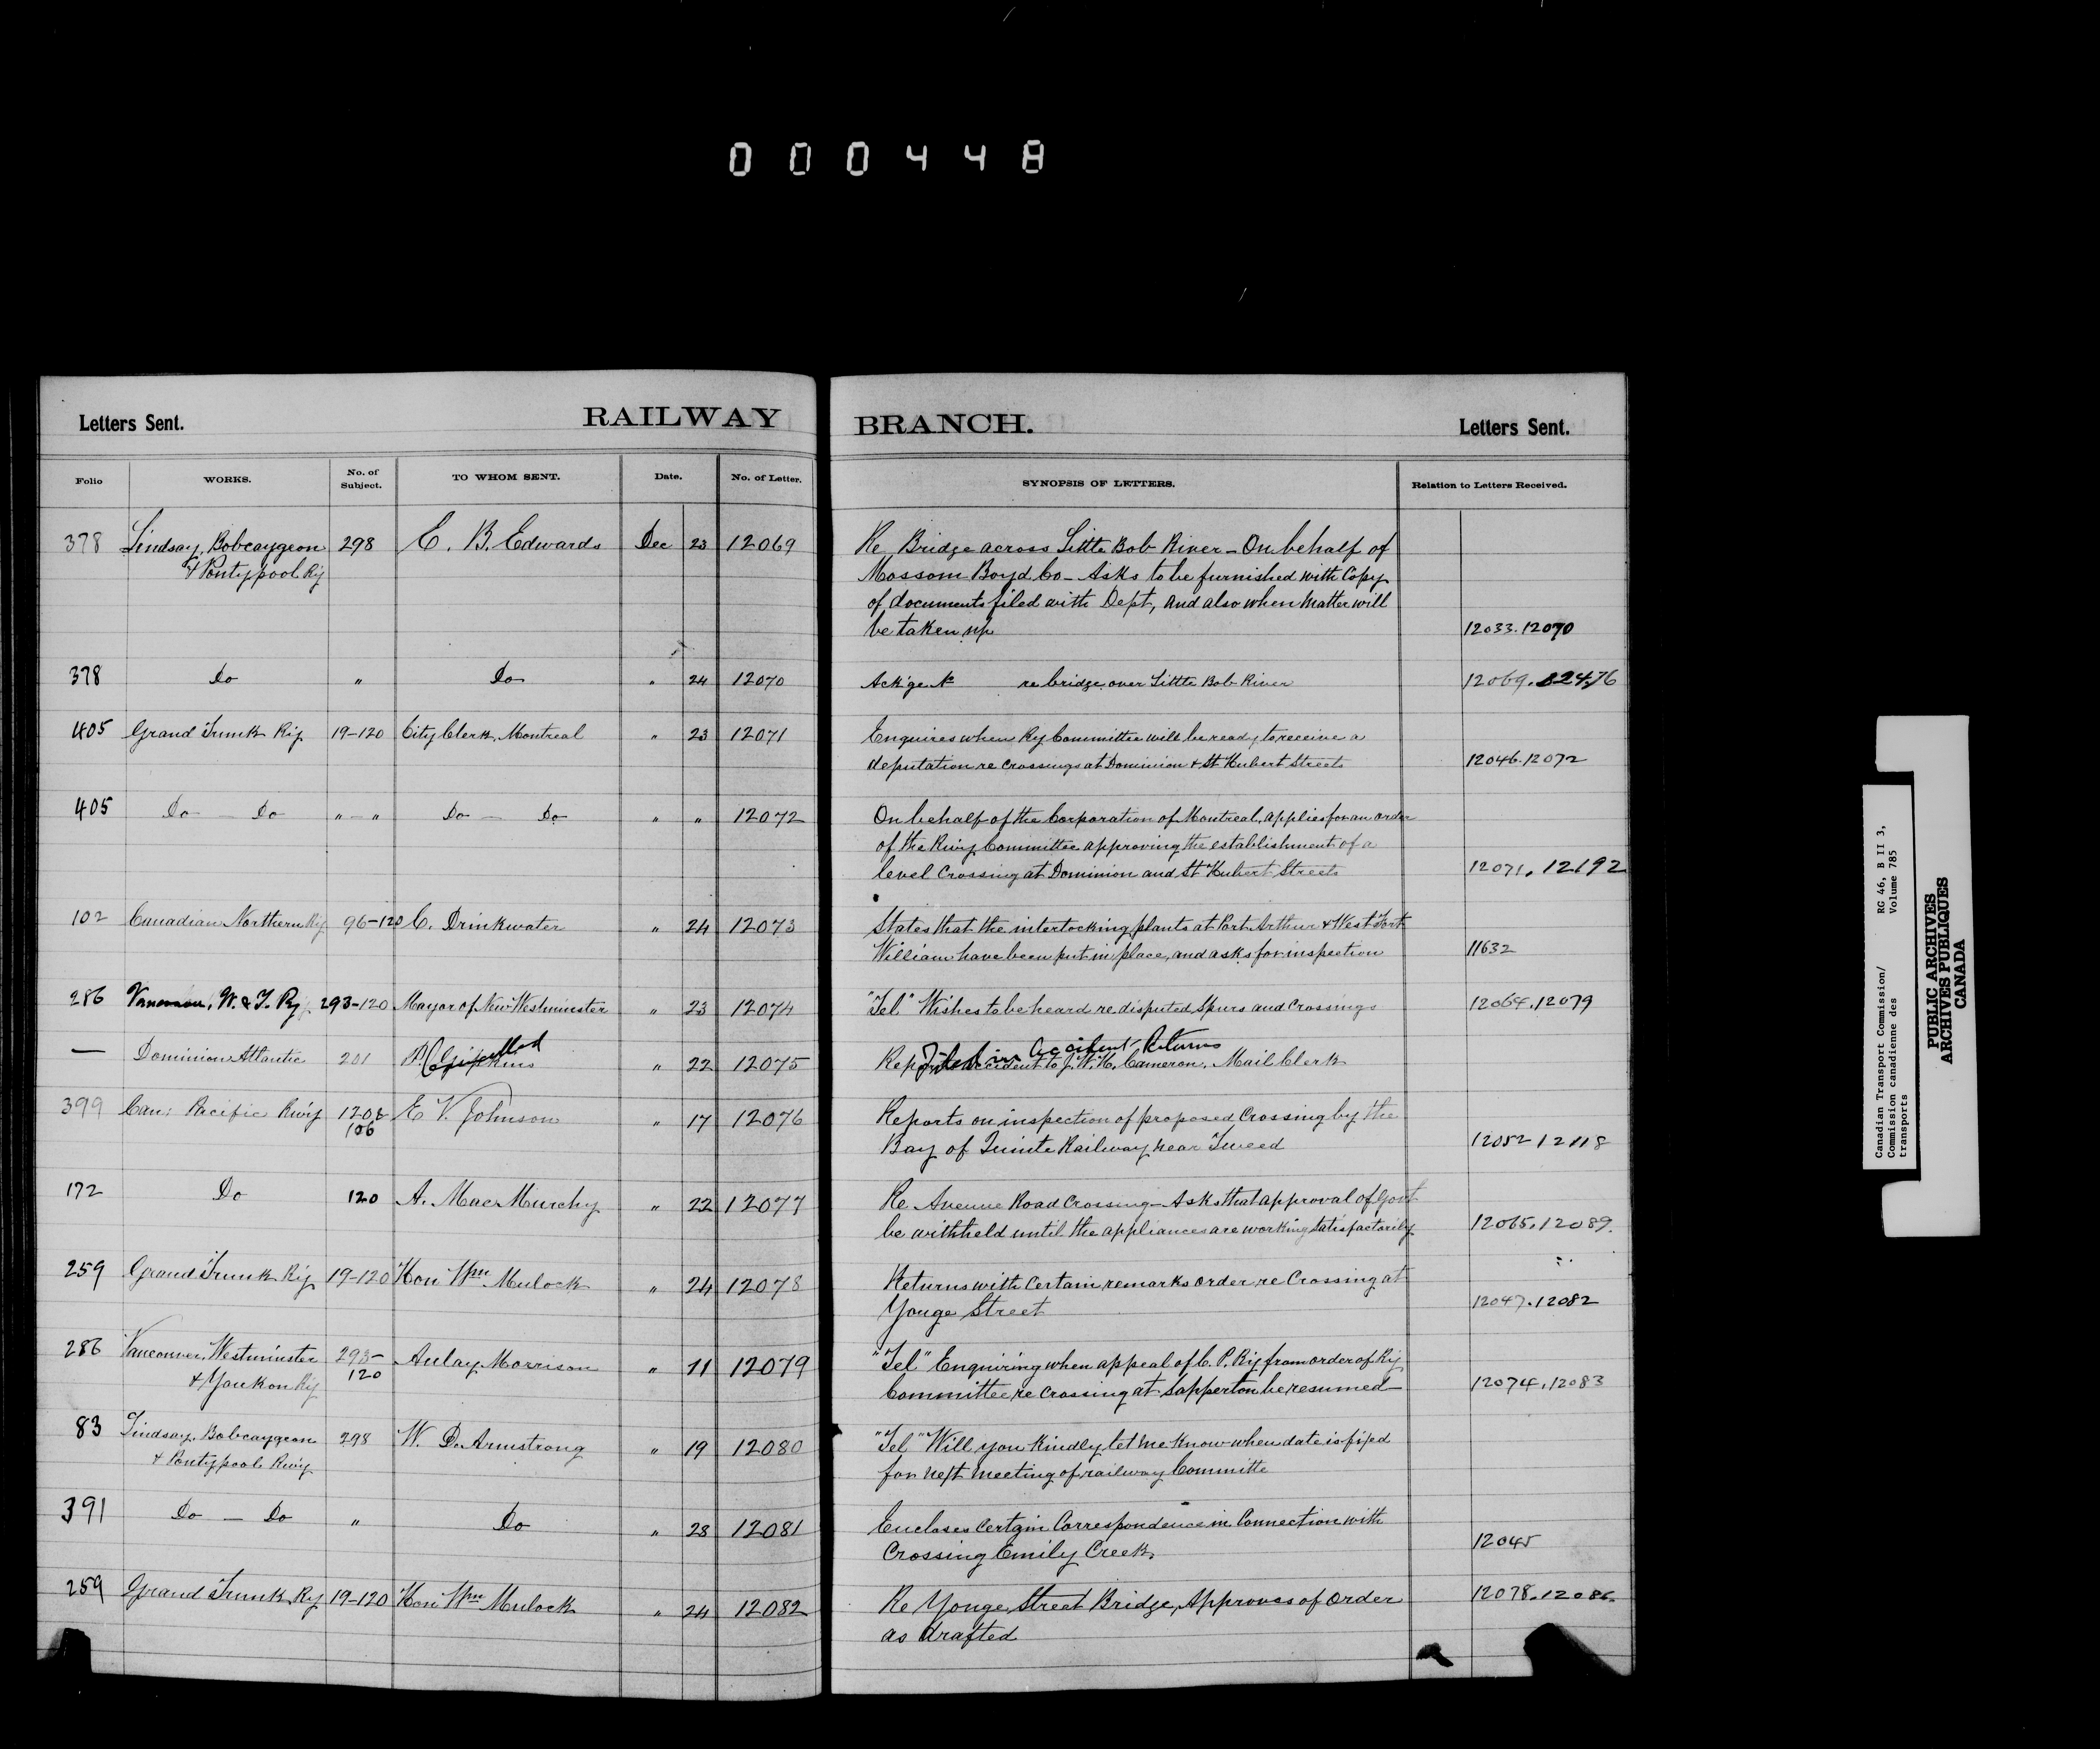 000448
Letters Sent. RAILWAY BRANCH. Letters Sent.
Folio WORKS. No. of Subject. TO WHOM SENT. Date. No. of Letter. SYNOPSIS OF LETTERS. Relation to Letters Received.
378 Lindsay, Bobcaygeon 298 E. B. Edwards Dec 23 12069 Re Bridge across Little Bob River - On behalf of
& Pontypool Ry Mossom Boyd Co - Asks to be furnished with Copy
of documents filed with Dept, and also when matter will
be taken up 12033.12070
378 Do " Do " 24 12070 Ack'ge re bridge over Little Bob River 12069.12476
405 Grand Trunk Ry 19-120 City Clerk, Montreal " 23 12071 Enquires when Ry Committee will be ready to receive a
deputation re Crossings at Dominion & St Hubert Streets 12046.12072
405 Do — Do " — " Do — Do " " 12072 On behalf of the Corporation of Montreal, applies for an order
of the Rwy Committee approving the establishment of a
level Crossing at Dominion and St Hubert Streets 12071.12192
102 Canadian Northern Ry 96-120 C. Drinkwater " 24 12073 States that the interlocking plants at Port Arthur & West Fort
William have been put in place, and asks for inspection 11632
286 Vancouver, W. & Y. Ry 293-120 Mayor of New Westminster " 23 12074 "Tel" Wishes to be heard re disputed Spurs and Crossings 12064.12079
— Dominion Atlantic 201 P. Gifkins Cancelled " 22 12075 Reports accident to J. W. H. Cameron, Mail Clerk
Filed in Accident Returns
399 Can: Pacific Rwy 120 & E. V. Johnson " 17 12076 Reports on inspection of proposed Crossing by the
106 Bay of Quinte Railway near Tweed 12052 12118
172 Do 120 A. MacMurchy " 22 12077 Re Avenue Road Crossing - Asks that approval of Govt
be withheld until the appliances are working satisfactorily 12065.12089.
259 Grand Trunk Ry 19-120 Hon Wm Mulock " 24 12078 Returns with certain remarks order re Crossing at
Yonge Street 12047.12082
286 Vancouver, Westminster 293- Aulay Morrison " 11 12079 "Tel" Enquiring when appeal of C. P. Ry from order of Ry
& Youkon Ry 120 Committee re Crossing at Sapperton be resumed — 12074.12083
83 Lindsay, Bobcaygeon 298 W. D. Armstrong " 19 12080 "Tel" Will you Kindly let me Know when date is fixed
& Pontypool Rwy for next meeting of railway Committe
391 Do — Do " Do " 28 12081 Encloses Certain Correspondence in Connection with
Crossing Emily Creek. 12045
259 Grand Trunk Ry 19-120 Hon Wm Mulock " 24 12082 Re Yonge Street Bridge, Approves of order 12078.12086
as drafted
Canadian Transport Commission/ RG 46, B II 3,
Commission canadienne des Volume 785
transports
PUBLIC ARCHIVES
ARCHIVES PUBLIQUES
CANADA